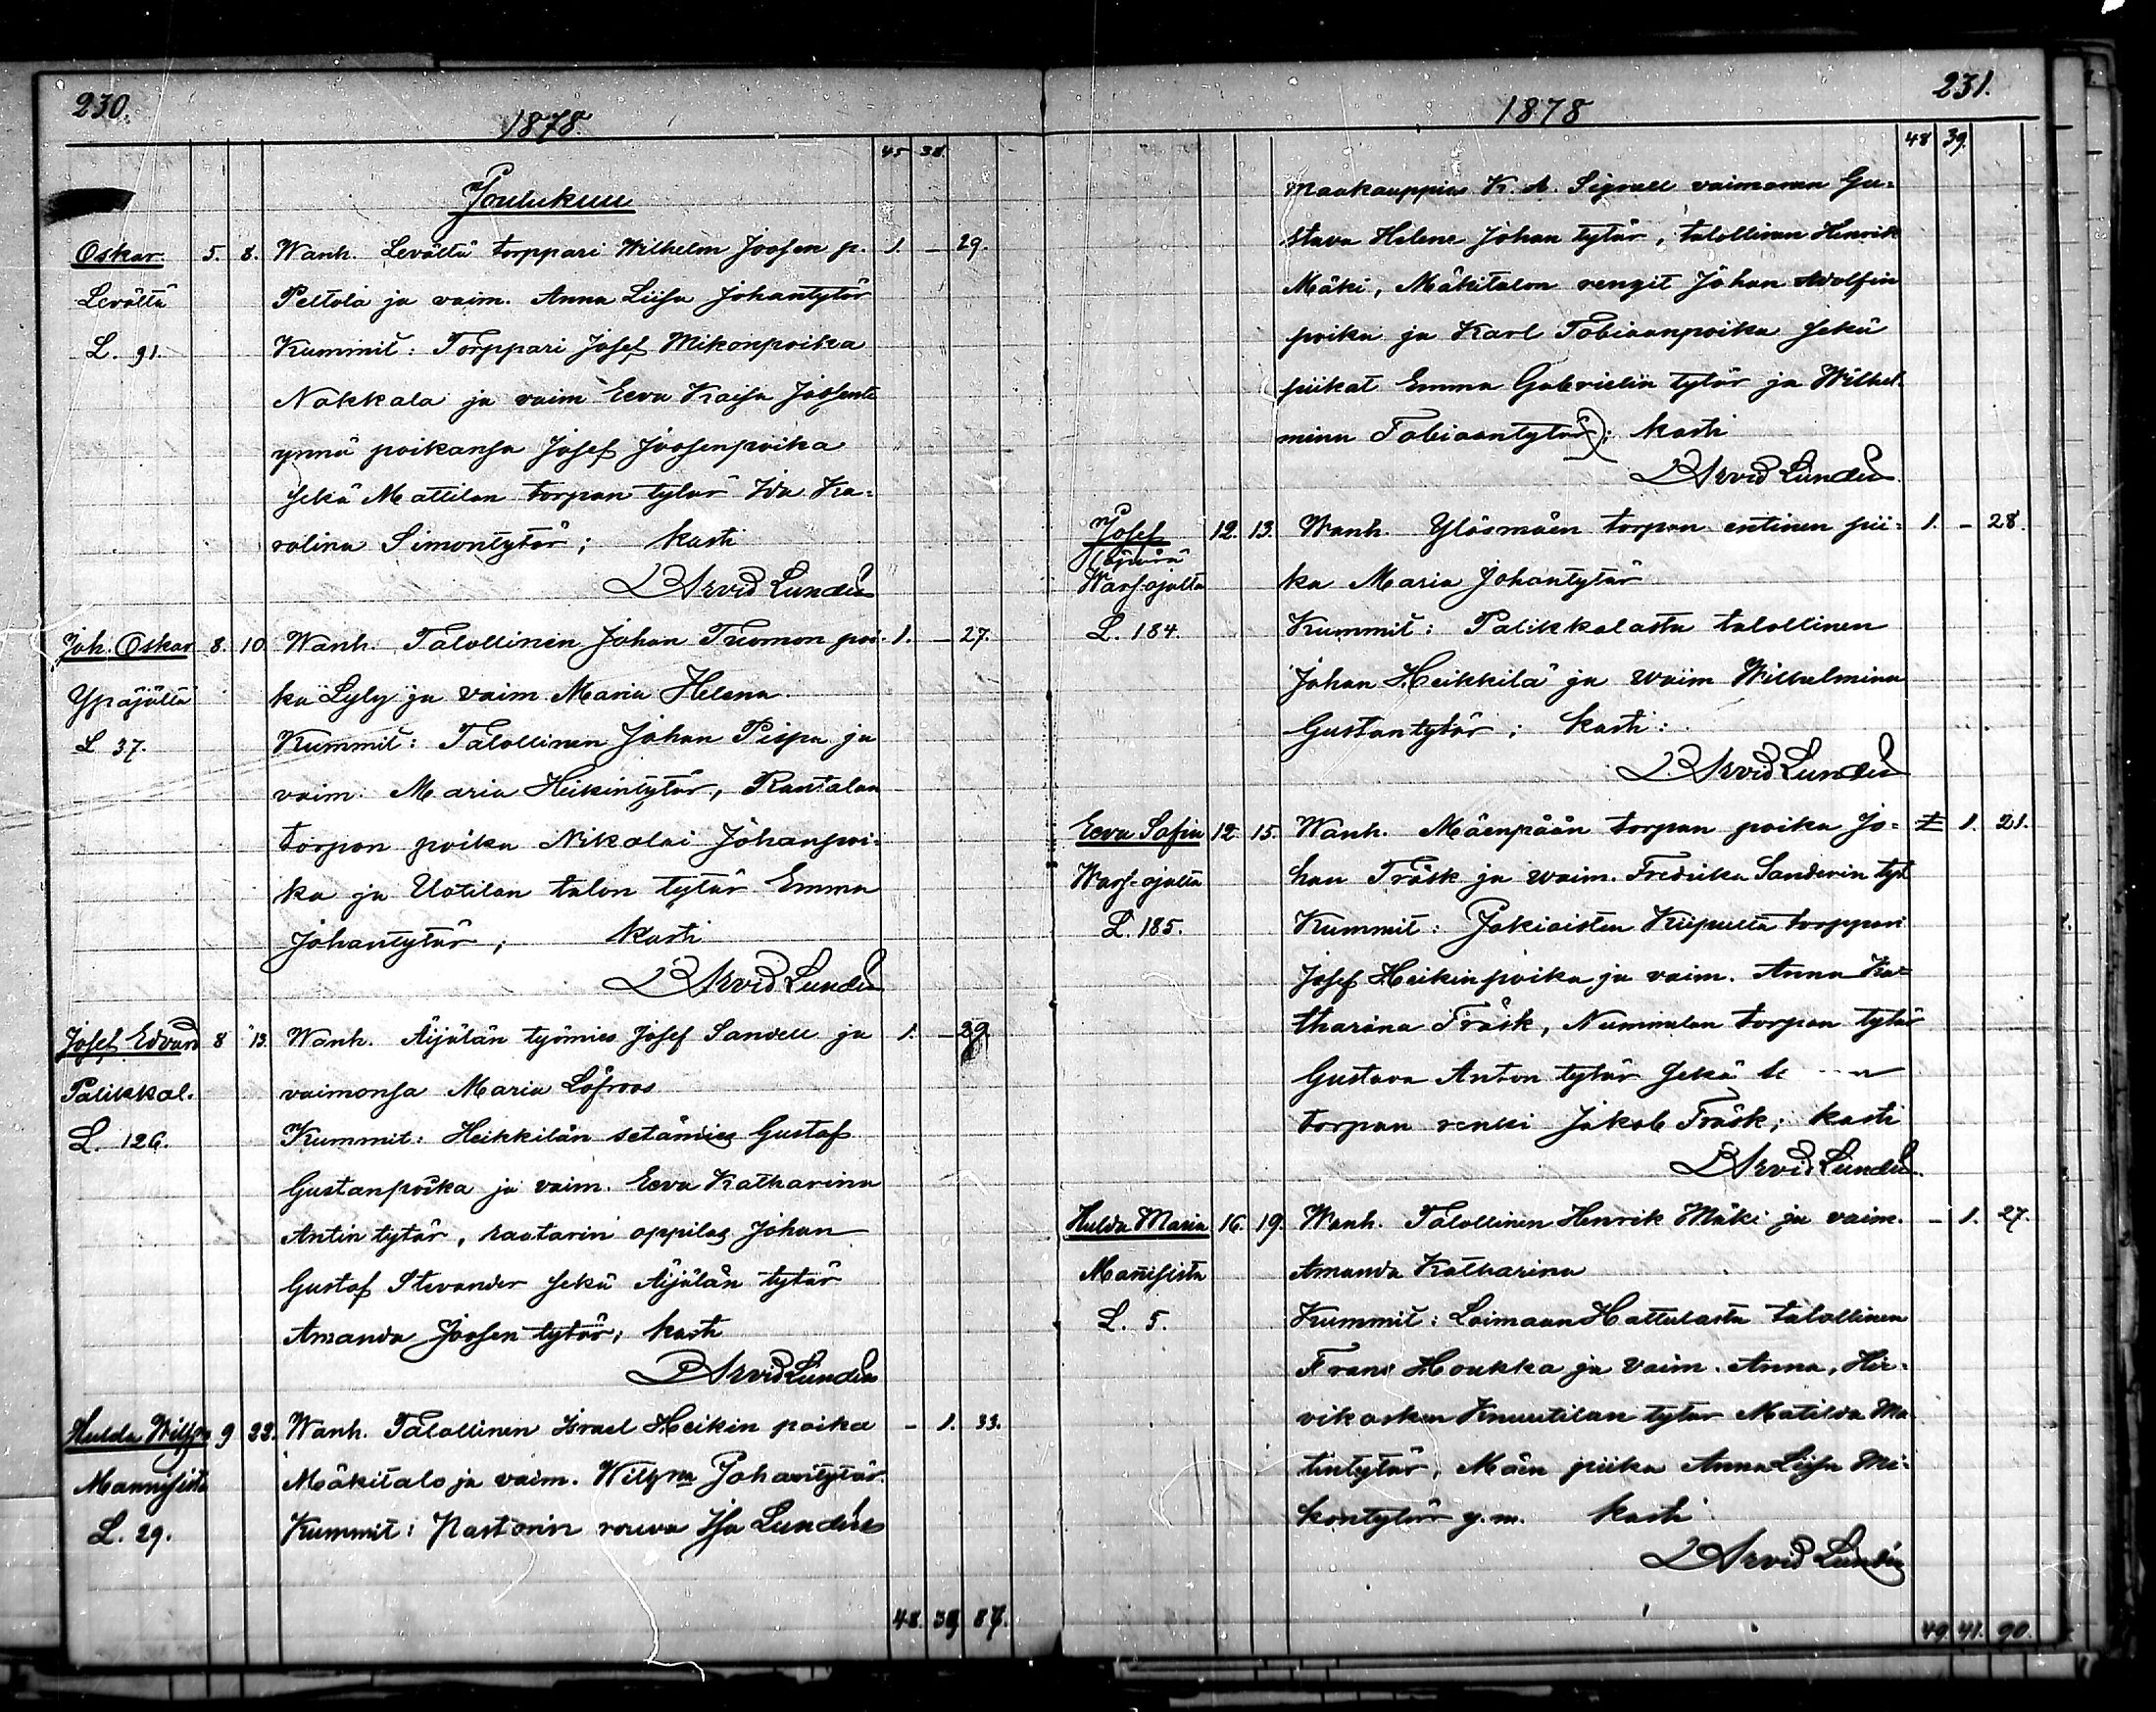 230.
1878.
45 38.
Joulukuu
Oskar 5. 8. Wanh. Levältä torppari Wilhelm Joosen p. 1. — 29.
Levältä Peltola ja vaim. Anna Liisa Johantytär
L. 91. Kummit: Torppari Josef Mikonpoika
Nokkala ja vaim Eeva Kaisa
ynnä poikansa Josef Joosenpoika
sekä Mattilan torpan tytär Ida Ka-
rolina Simontytär; kasti
Arvid Lundén
Joh. Oskar 8. 10. Wanh. Talollinen Johan Tuomon poi- 1. — 27.
Ypäjältä ka Lyly ja vaim. Maria Helena.
L 37. Kummit: Talollinen Johan Pispa ja
vaim. Maria Heikintytär, Rantalan
torpan poika Nikolai Johanpoi-
ka ja Uotilan talon tytär Emma
Johantytär; kasti
Arvid Lundén
Josef Edvard 8 13. Wanh. Äijälän työmies Josef Sandell ja 1. — 29.
Palikkal. vaimonsa Maria Löfroos
L. 126. Kummit: Heikkilän setämies Gustaf
Gustanpoika ja vaim. Eeva Katharina
Antin tytär, raatarin oppilas Johan
Gustaf Stevander sekä Äijälän tytär
Amanda Joosen tytär; kasti
Arvid Lundén
Hulda Wilhma 9 23. Wanh. Talollinen Israel Heikin poika — 1. 33.
Mannisista Mäkitalo ja vaim. Wilhma Johantytär.
L. 29. Kummit: Pastorin rouva Lundén
48. 39 87.
231.
1878
48 39.
Maakauppias K. A. vaimonsa Gu-
stava Helena Johan tytär, talollinen Henrik
Mäki, Mäkitalon rengit Johan Adolfin
poika ja Karl Tobiaanpoika sekä
piikat Emma Gabrielin tytär ja Wilhel-
mina Tobiaantytär); kasti
Arvid Lundén
Josef 12. 13. Wanh. Yläsmäen torpan entinen pii- 1. — 28.
(äpärä)
Warsojalta ka Maria Johantytär
L. 184. Kummit: Palikkalasta talollinen
Johan Heikkilä ja waim Wilhelmina
Gustantytär; kasti:
Arvid Lundén
Eeva Sofia 12 15. Wanh. Mäenpään torpan poika Jo- 1. 1. 21.
Warsojalta han Träsk ja waim. Fredrika Sanderin tyt
L. 185. Kummit: Jokioisten Kiipulta torppari
Josef Heikinpoika ja vaim. Anna Ka-
tharina Träsk, Nummelan torpan tytär
Gustava Anton tytär sekä
torpan renki Jakob Träsk; kasti
Arvid Lundén.
Hulda Maria 16. 19. Wanh. Talollinen Henrik Mäki ja vaim. — 1. 27.
Manisista Amanda Katharina
L. 5. Kummit: Loimaan Hattulasta talollinen
Frans Houkka ja vaim. Anna, Hir-
vikosken Knuutilan tytär Matilda Ma-
tintytär, Mäen piika Anna Liisa Mi-
kontytär y.m. kasti
Arvid Lundén
49. 41. 90.